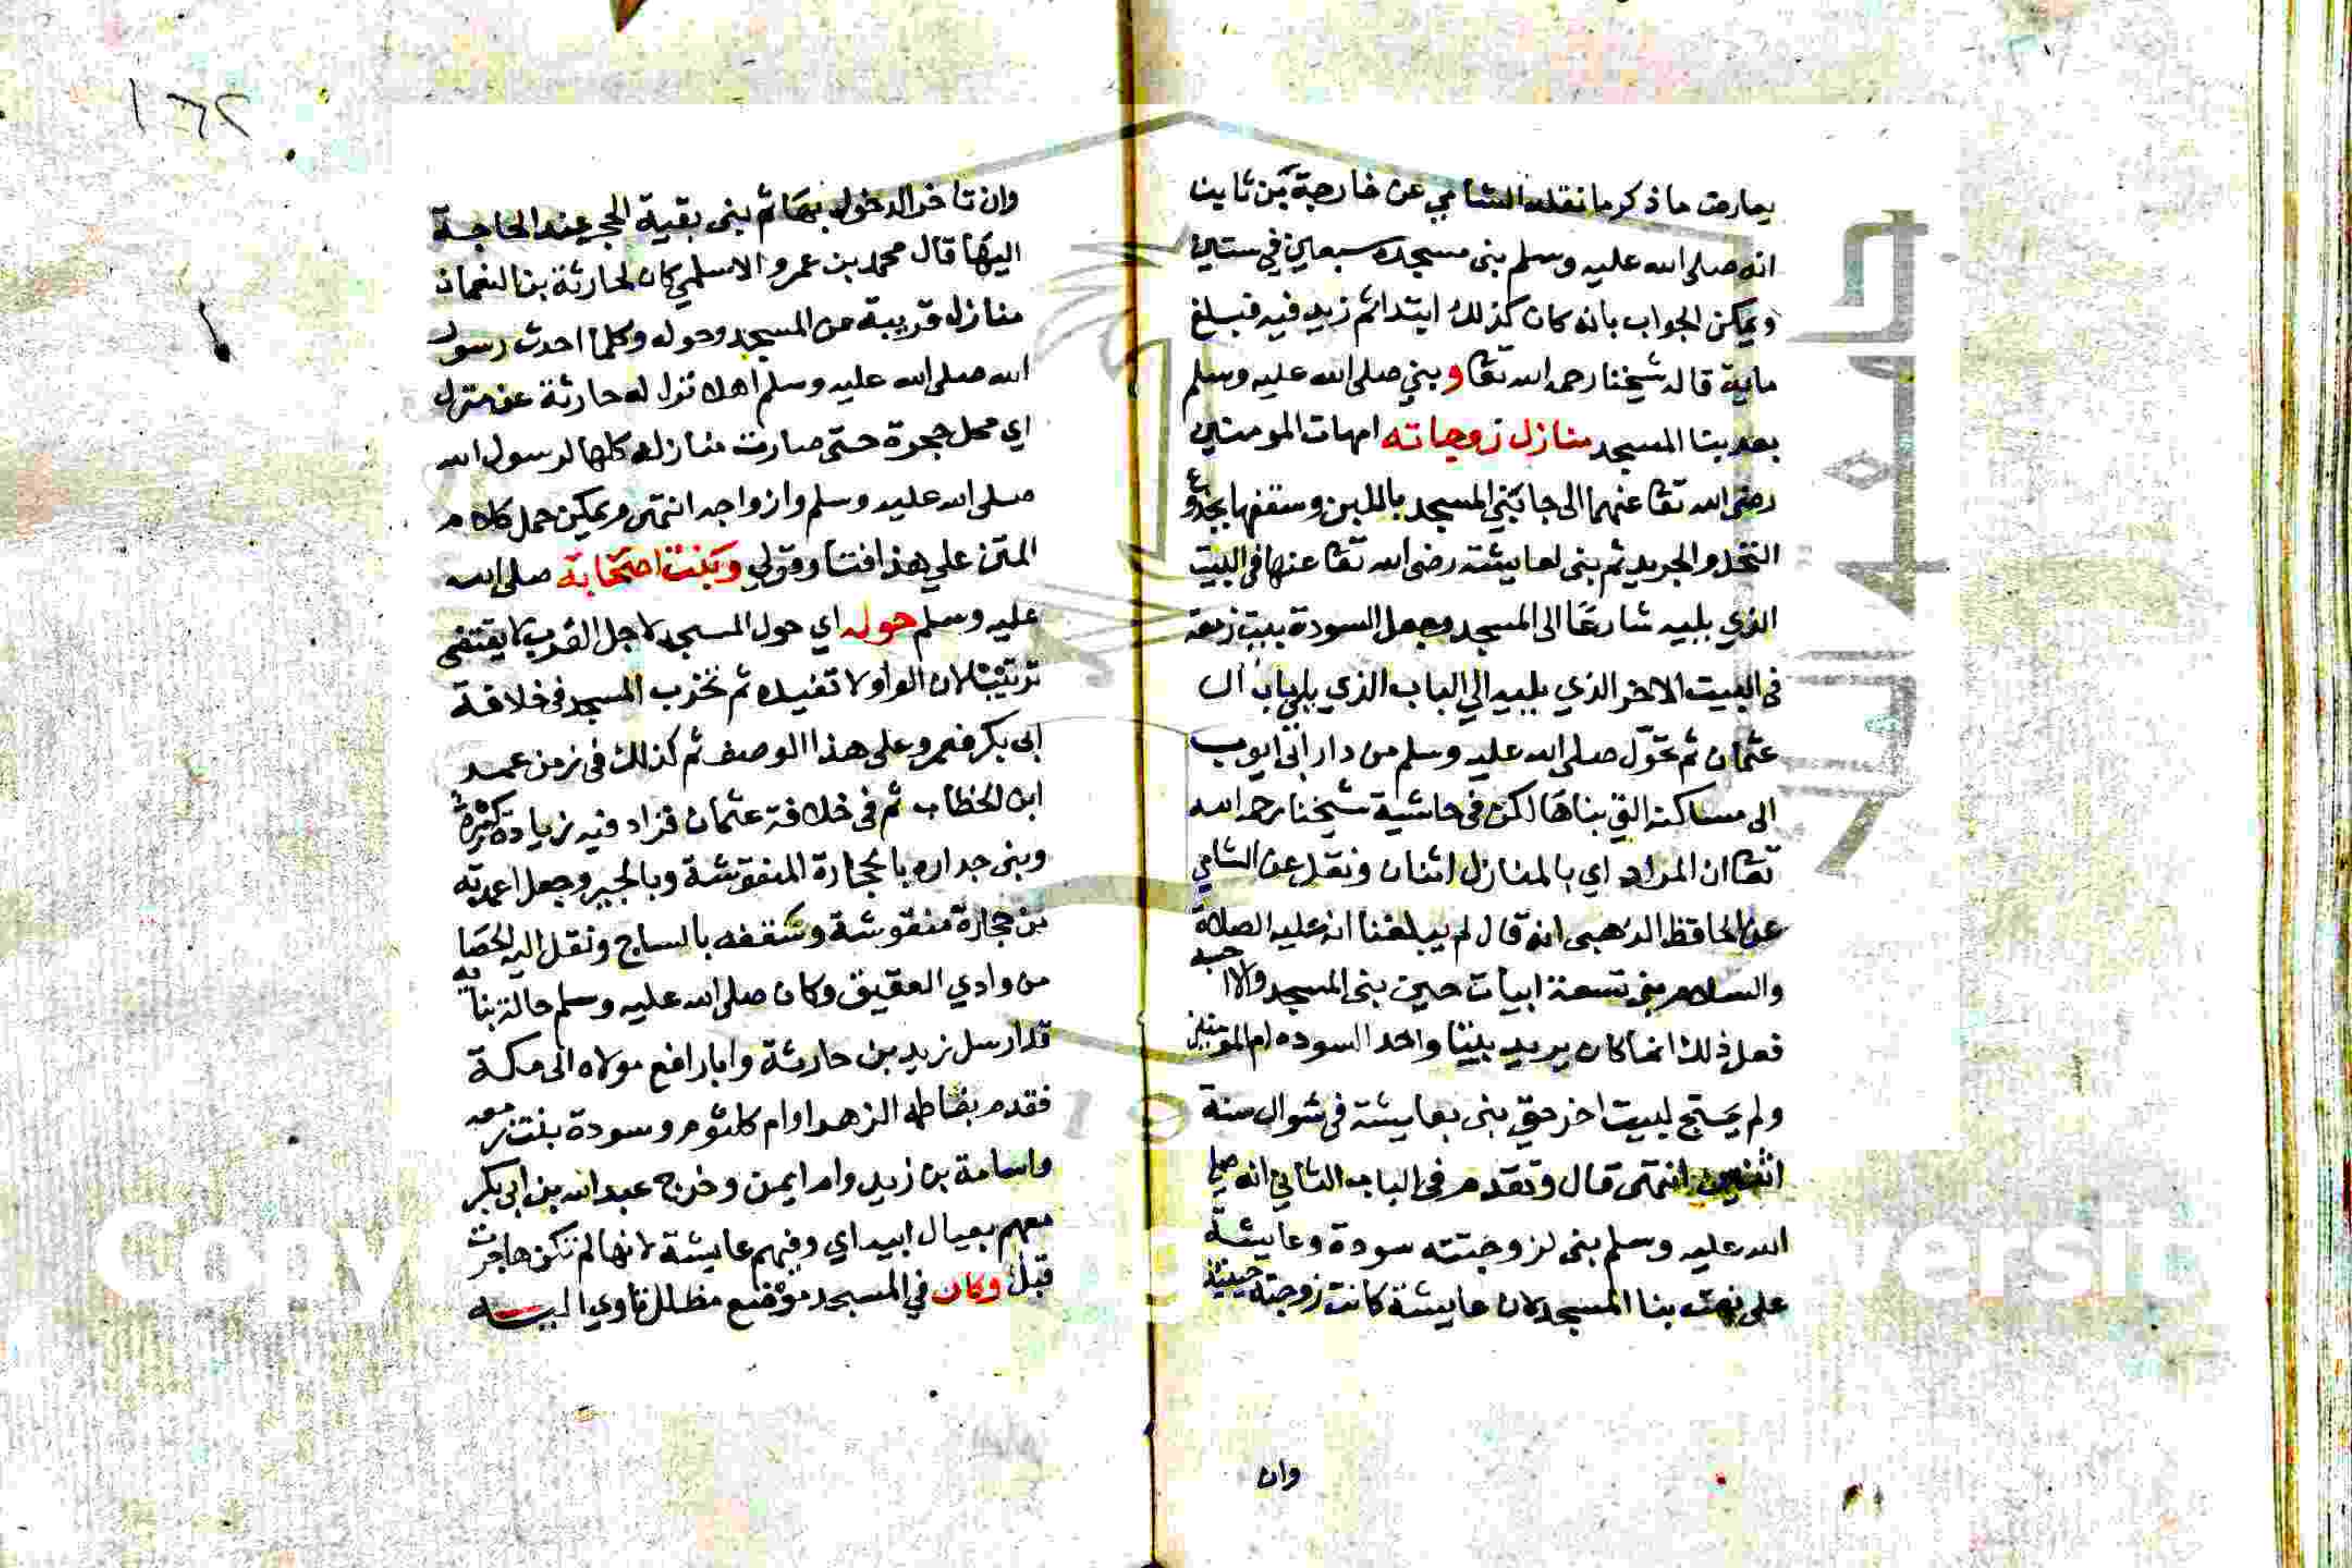 يعارض ما ذكر ما نقله الشامي عن خارجة بن ثابت
انه صلى الله عليه وسلم بنى مسجده سبعين في ستين
ويمكن الجواب بانه كان كذلك ابتدا ثم زيد فيه فبلغ
ماية قاله شيخنا رحمه الله تعا وبني صلى الله عليه وسلم
بعد بنا المسجد منازل زوجاته امهات المومنين
رضى الله تعا عنهما الى جانبي المسجد باللبن وسقفها بجذوع
النخل والجريد ثم بنى لعايشة رضى الله تعا عنها في البيت
الذي يليه شارعا الى المسجد وجعل السودة بيت زمعة
في البيت الاخر الذي يليه الي الباب الذي يلي باب ال
عثمان ثم تحوّل صلى الله عليه وسلم من دار ابي ايوب
الى مساكنه التي بناها لكن في حاشية شيخنا رحمه الله
تعا ان المراد اي بالمنازل اثنان ونقل عن الشامي
عن الحافظ الذهبي انه قال لم يبلغنا انه عليه الصلاة
والسلام بنى تسعة ابيات حين بنى المسجد ولا احسبه
فعل ذلك انما كان يريد بيتا واحد السوده ام المومنين
ولم يحتج لبيت اخر حتى بنى بعايشة في شوال سنة
اثنين انتهى قال وتقدم في الباب الثاني انه صلى
الله عليه وسلم بنى لزوجتته سودة وعايشة
على نعت بنا المسجد لان عايشة كانت زوجته حينئذ
وان
١٦٢
وان تاخر الدخول بها ثم بنى بقية الحجر عند الحاجة
اليها قال محمد بن عمرو الاسلمي كان لحارثة بن النعمان
منازل قريبة من المسجد وحوله وكلما احدث رسول
الله صلى الله عليه وسلم اهلا نزل له حارثة عن منزل
اي محل حجرة حتى صارت منازله كلها لرسول الله
صلى الله عليه وسلم وازواجه انتهى ويمكن حمل كلام
المتن علي هذا وقولي وبنت اصحابة صلى الله
عليه وسلم حوله اي حول المسجد لاجل القرب لا يقتضى
ترتيبا لان الواو لا تفيده ثم تخرب المسجد في خلافة
ابى بكر فعمر وعلى هذا الوصف ثم كذلك في زمن عمر
ابن الخطاب ثم في خلافة عثمان فزاد فيه زيادة كثيرة
وبنى جداره بالحجارة المنقوشة وبالجير وجعل اعمدته
من حجارة منقوشة وسقفه بالساج ونقل اليه الحصا
من وادي العقيق وكان صلى الله عليه وسلم حالة بنايه
قد ارسل زيد بن حارثة وابا رافع مولاه الى مكة
فقدم بفاطمه الزهرا وام كلثوم وسودة بنت زمعه
واسامة بن زيد وام ايمن وخرج عبد الله بن ابى بكر
معهم بعيال ابيه اي وفيهم عايشة لانها لم تكن هاجرت
قبل وكان في المسجد موضع مظلل تاوي اليه